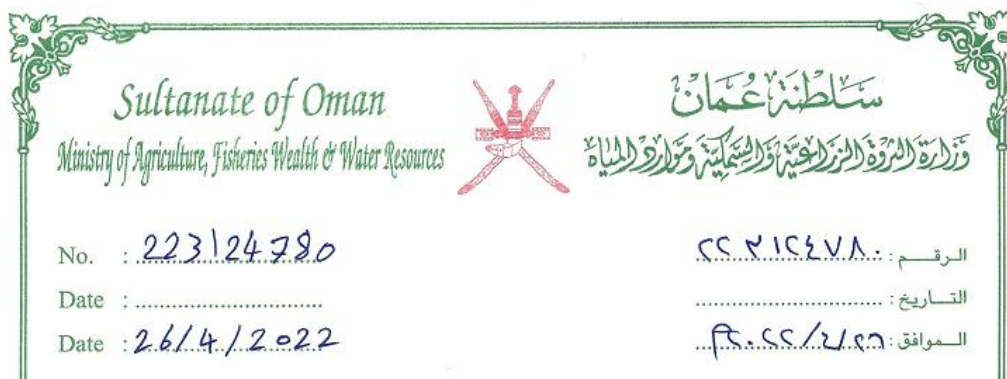 Sultanate of Oman
Ministry of Agriculture, Fisheries Wealth & Water Resources
سلطنة عُمان
وزارة الثروة الزراعية والسمكية وموارد المياه
No. : 223124780
Date : ..............................
Date : 26/4/2022
الرقم : ٢٢٣١٢٤٧٨٠
التاريخ : ..............................
الموافق : ٢٠٢٢/٤/٢٦م